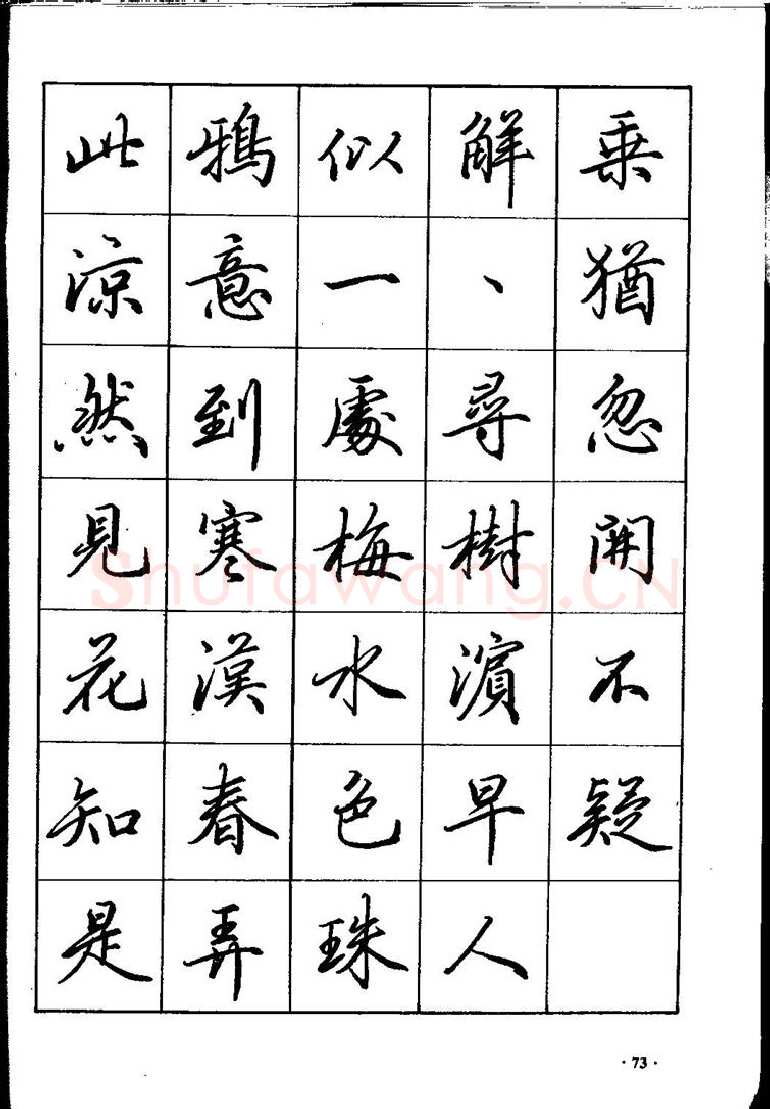 此鴉似解乘
涼意一、猶
然到處尋忽
見寒梅樹開
花漢水濱不
知春色早疑
是弄珠人
Shufawang.CN
· 73 ·